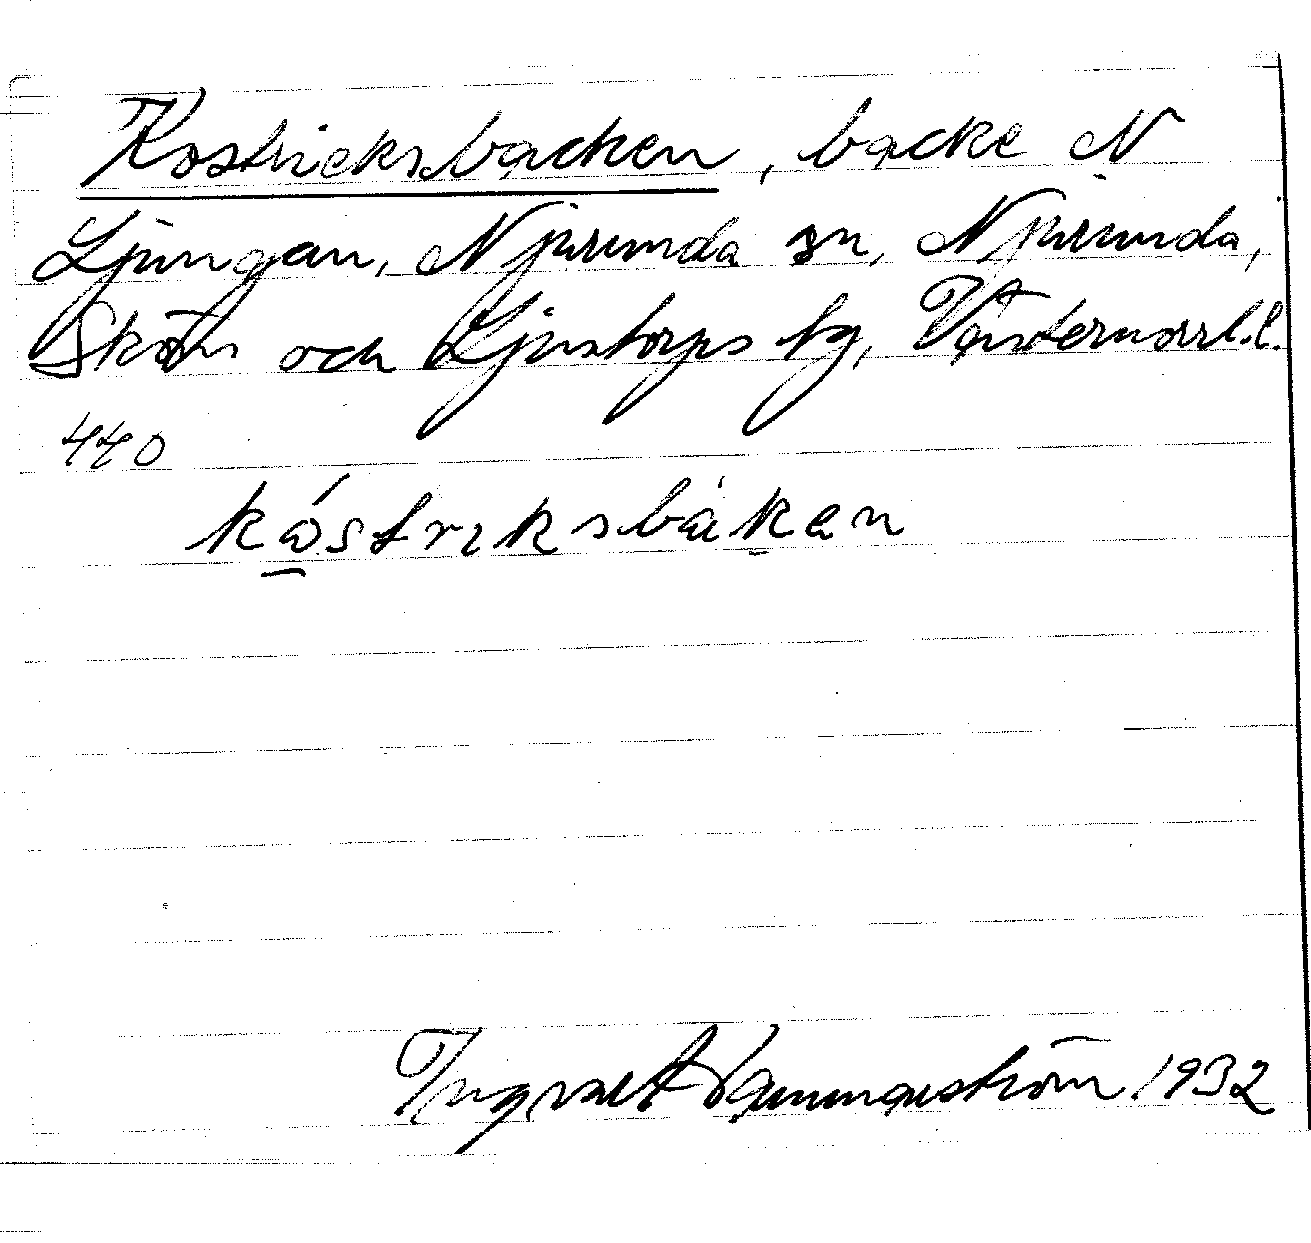 Kostricksbacken, backe N
Ljungan, Njurunda sn, Njurunda,
Sköns och Ljustorps tg, Västernorrl. l.
440
kåstriksbaken
Ingvalf Hammarström 1932